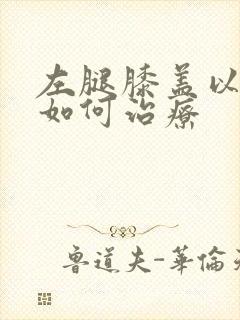 左腿膝盖以
如何治療
魯道夫-華倫